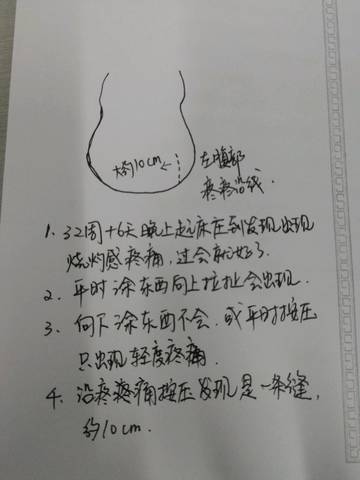 大约10cm
左腹部
疼痛沿线.
1、32周+6天晚上起床在到发现出现
烧灼感疼痛,过会就好了.
2、平时涂东西向上拉扯会出现.
3、向下涂东西不会,或平时按压
只出现轻度疼痛.
4、沿疼疼痛按压发现是一条缝,
约10cm.